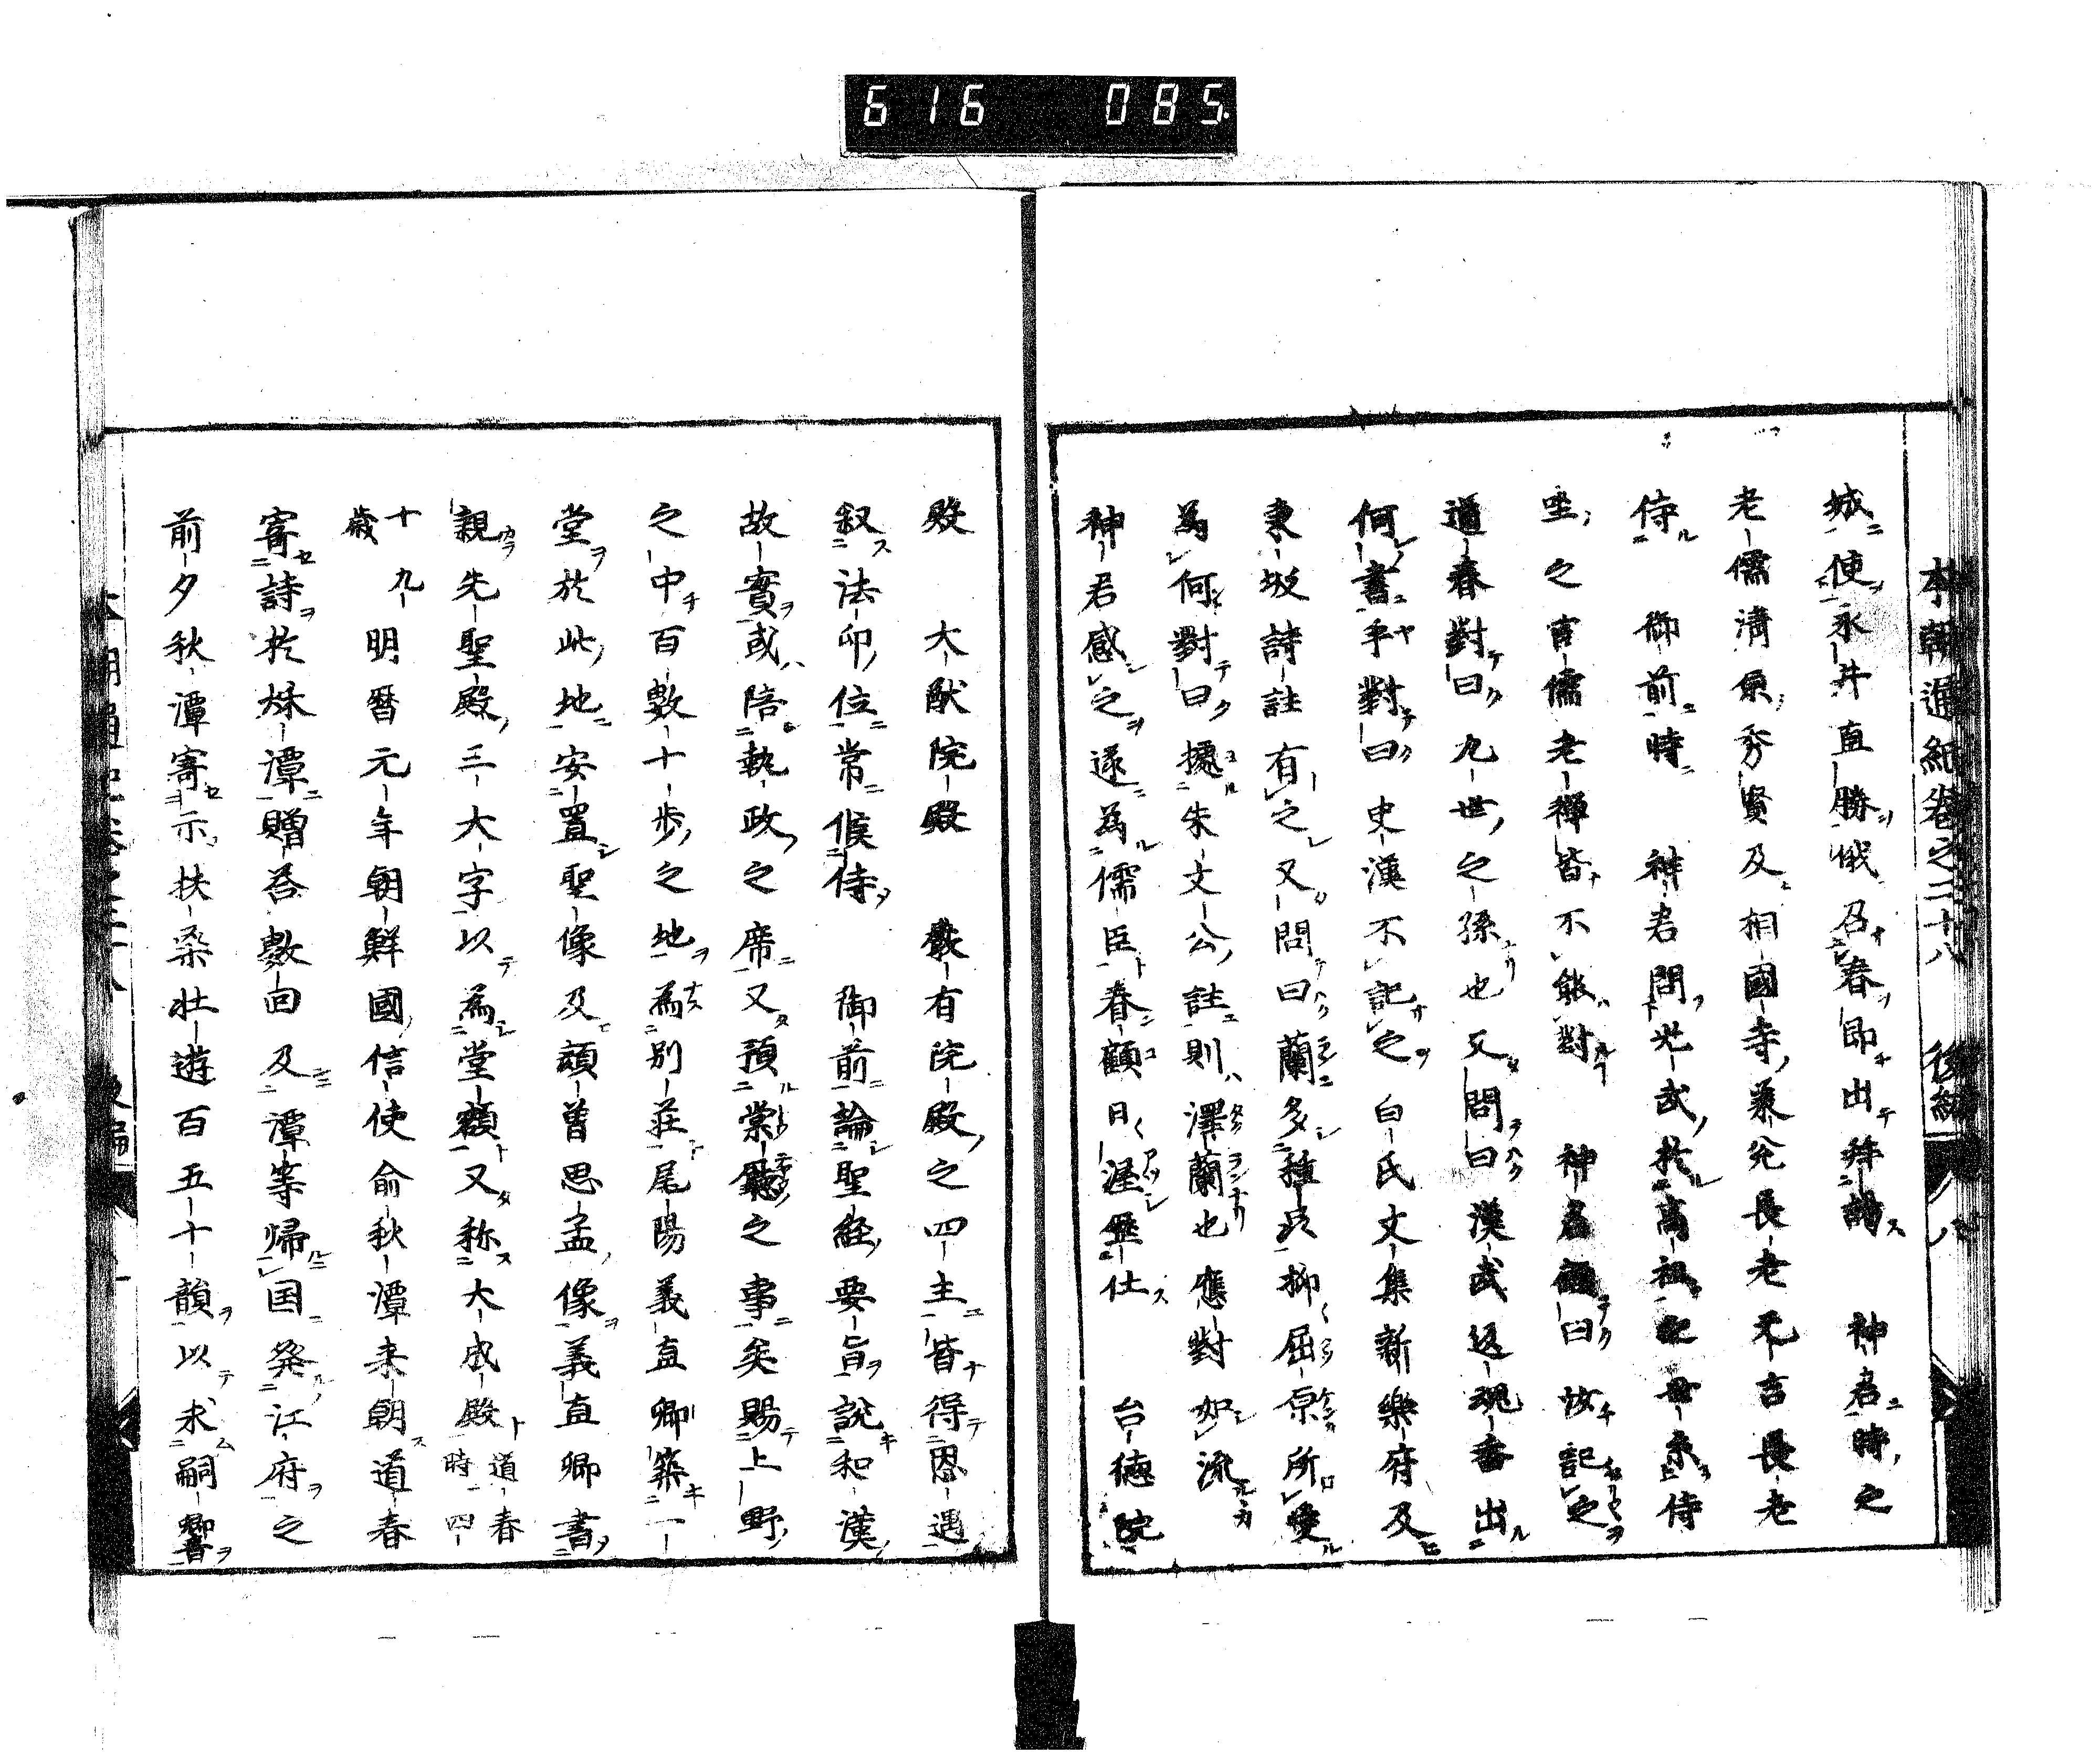 616 085
本朝通紀巻之二十八 後編 八
城使永井直勝俄召春即出拜謁 神君時之
老儒清原秀賢及相國寺兼兌長老元吉長老
侍 御前時 神君問光武於高祖世系侍
坐之官儒老禅皆不能對 神君顧曰汝記之
道春對曰九世之孫也又問曰漢武返魂香出
何書乎對曰史漢不記之白氏文集新樂府及
東坡詩註有之又問曰蘭多種矣抑屈原所愛
為何對曰據朱文公註則澤蘭也應對如流
神君感之遂為儒臣春顧日渥歴仕 台徳院
殿 大猷院殿 嚴有院殿之四主皆得恩遇
叙法印位常候侍 御前論聖經要旨説和漢
故實或陪執政之席又預棠聽之事矣賜上野
之中百數十歩之地為別莊尾陽義直卿築一
堂於此地安置聖像及顔曽思孟像義直卿書
親先聖殿三大字以為堂額又称大成殿道春時四
十九歳 明暦元年朝鮮國信使俞秋潭来朝道春
寄詩於秋潭贈荅數回及潭等帰国発江府之
前夕秋潭寄示扶桑壮遊百五十韻以求嗣響